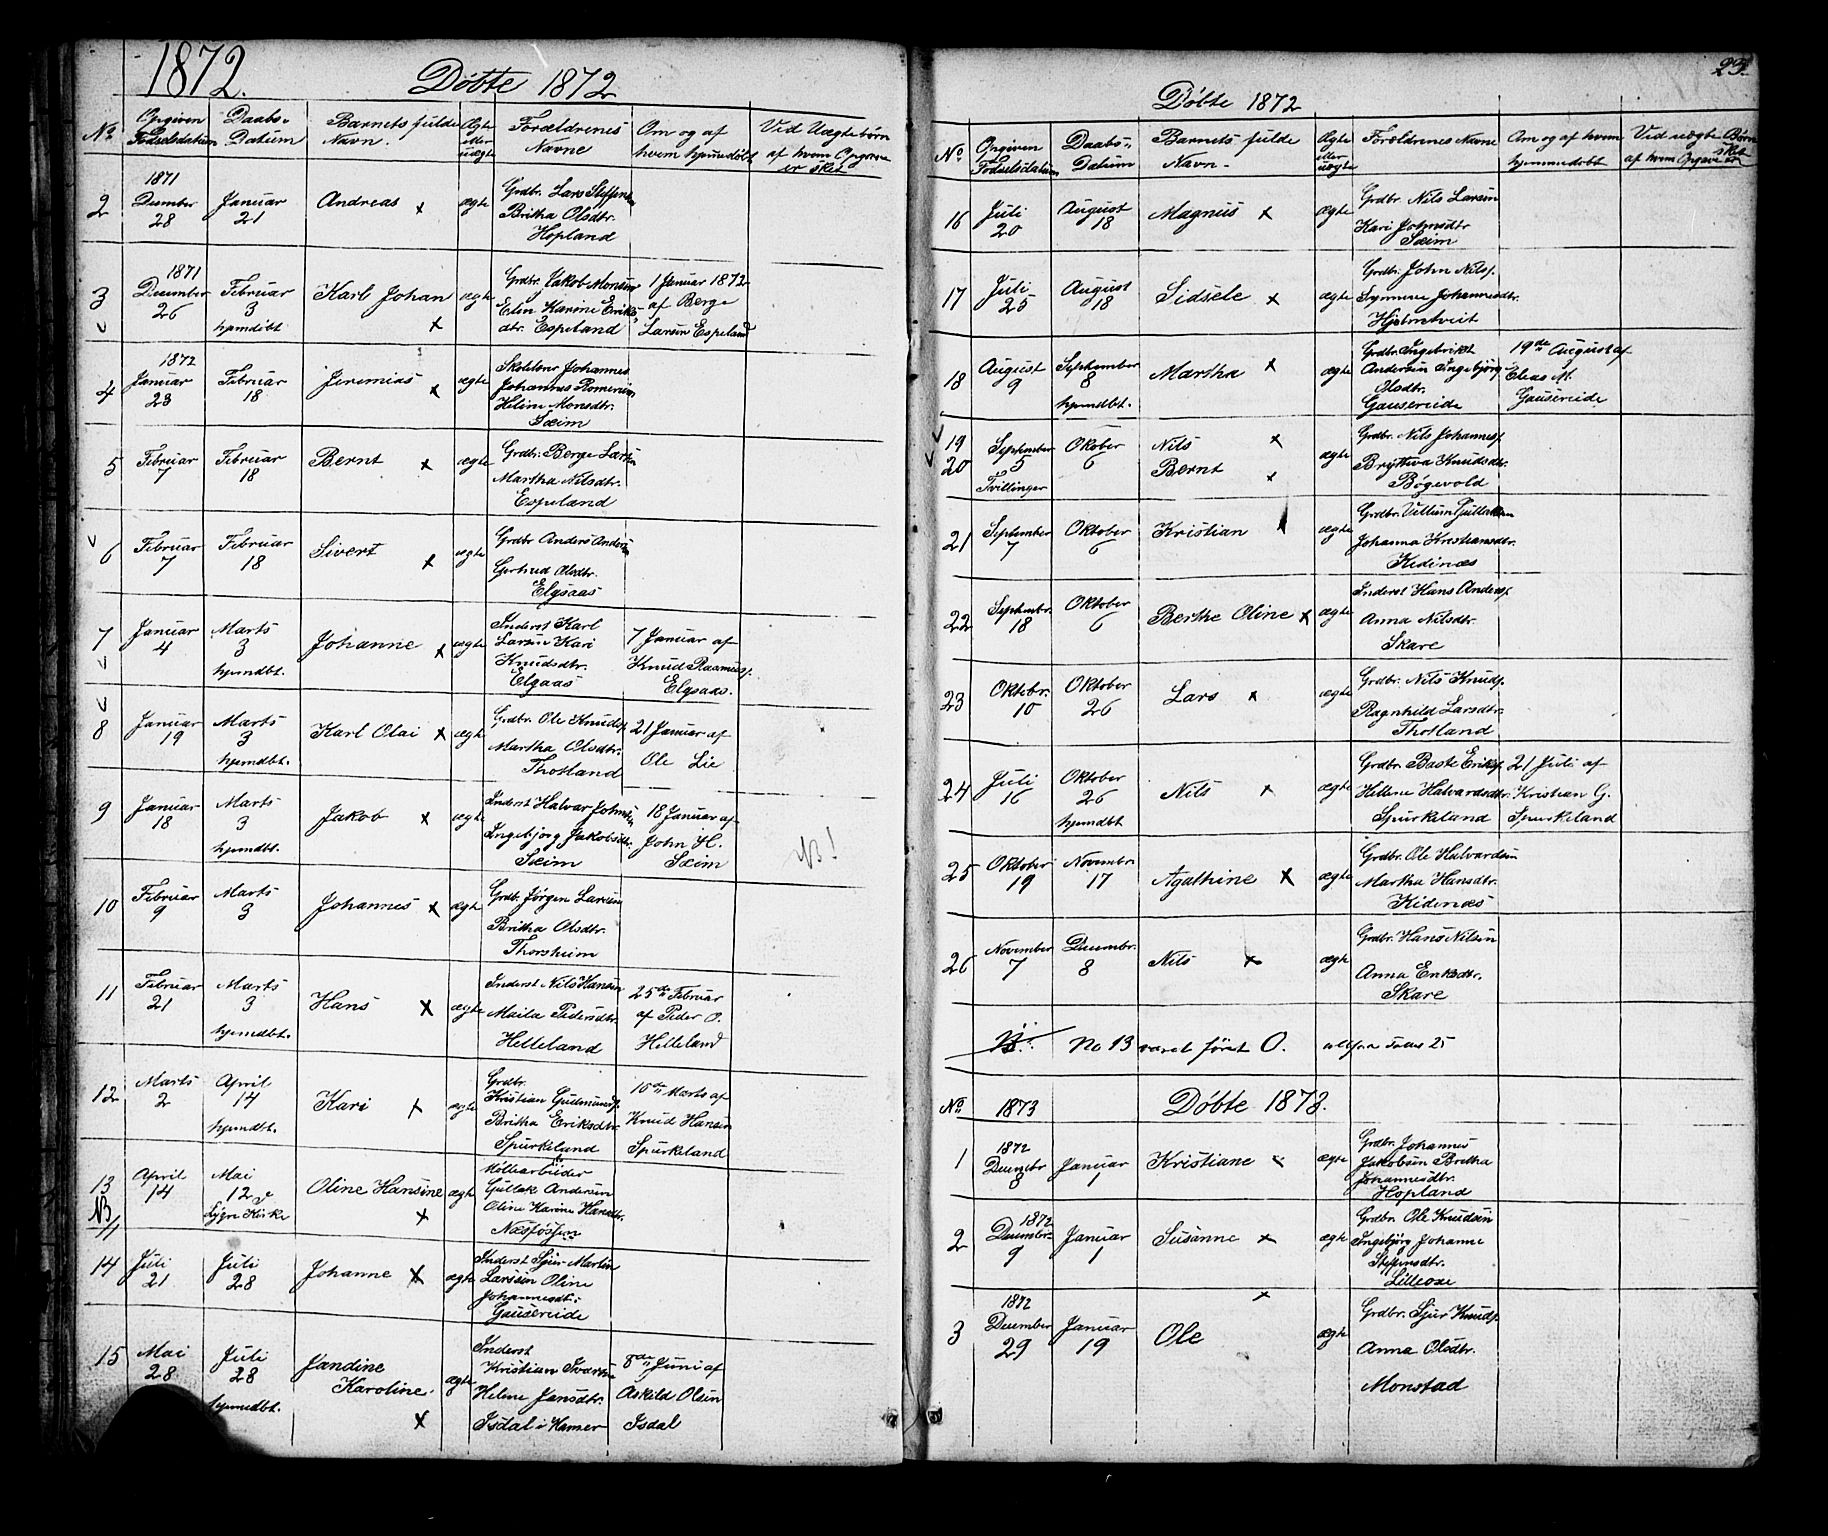 1872.
Døbte 1872
No
Opgiven Fødselsdatum
Daabs-Datum
Barnets fulde Navn.
Ægte eller uægte
Forældrenes Navne
Om og af hvem hjemmedøbt
Ved Uægte børn af hvem Opgave er sket
2
1871 December 28
Januar 21
Andreas x
ægte
Grdbr. Lars Steffensen
Britha Olsdtr.
Hopland
3
1871 December 26
Februar 3 hjemdøbt
Karl Johan x
ægte
Grdbr. Jakob Monsen
Elen Karine Eriks-
dtr. Espeland
1 Januar 1872
af Berge
Larsen Espeland
4
1872 Januar 23
Februar 18
Jeremias x
ægte
Johannes
Helene Monsdtr.
Sæim
5
Februar 7
Februar 18
Bernt x
ægte
Grdbr. Berge Larsen
Martha Nilsdtr.
Espeland
6
Februar 7
Februar 18
Sivert x
ægte
Grdbr Anders Andersen
Gertrud Olsdtr.
Elgsaas
7
Januar 4
Marts 3 hjemdbt.
Johanne x
ægte
Inderst Karl
Larsen Kari
Knudsdtr.
Elgaas
7 Januar af
Knud Rasmuss.
Elgsaas.
8
Januar 19
Marts 3 hjemdbt.
Karl Olai x
ægte
Grdbr. Ole Knuds.
Martha Olsdtr.
Thotland
21 Januar af
Ole Lie
9
Januar 18
Marts 3 hjemdbt.
Jakob x
ægte
Inderst Halvar Johnsen
Ingebjørg Jakobsdtr.
Sæim
18 Januar af
John H.
Sæim
NB!
10
Februar 9
Marts 3
Johannes x
ægte
Grdb. Jørgen Larsen
Britha Olsdtr.
Thorsheim
11
Februar 21
Marts 3 hjemdbt.
Hans x
ægte
Inderst Nils Hansen
Pedersdtr.
Helleland
25de Februar
af Peder O.
Helleland
12
Marts 2
April 14 hjemdbt.
Kari x
ægte
Grdbr.
Kristian Gudmunds.
Britha Eriksdtr.
Spurkeland
Marts af
Knud Hansen
Spurkeland
13
NB
April 14
Mai 12 Kirke
Oline Hansine x
ægte
Gullak Andersen
Oline Karine Hansdtr.
14
Juli 21
Juli 28
Johanne x
ægte
Inderst Sjur Martin
Larssen Oline
Johannesdt.
Gausereide
15
Mai 28
Juli 28 hjemmedbt.
Jandine Karoline. x
ægte
Inderst
Kristian
Helene Jansdtr.
Isdal i Hamer
8de Juni af
Askild Olsen
Isdal
23.
Døbte 1872
No
Opgiven Fødselsdatum
Daabs-Datum
Barnets fulde Navn.
Ægte eller uægte
Forældrenes Navne
Om og af hvem hjemmedøbt
Ved uægte Børn af hvem Opgave er sket
16
Juli 20
August 18
Magnus x
ægte
Grdbr. Nils Larsen
Kari Johnsdtr
Sæim
17
Juli 25
August 18
Sidsele x
ægte
Grdbr. John Nils.
Synneve Johannesdtr.
Hjelmtveit
18
August 9
September 8 hjemdbt.
Martha x
ægte
Grdbr. Ingebrikt
Andersen Ingebjørg
Olsdtr.
Gausereide
19de August af
Elias M.
Gausereide
19
20
September 5 Tvillinger
Oktober 6
Nils x
Bernt x
ægte
Grdbr. Nils Johannes.
Brytteva Knudsdtr.
Bøgevold
21
September 7
Oktober 6
Kristian x
ægte
Grdbr. Villum
Johanna Kristiansdtr.
Kidenæs
22
Septembr. 18
Oktober 6
Berthe Oline x
ægte
Inderst Hans Anders.
Anna Nilsdtr.
Skare
23
Oktobr. 10
Oktober 26
Lars x
ægte
Grdbr. Nils Knuds.
Ragnhild Larsdtr.
Thotland
24
Juli 16
Oktober 26 hjemdbt
Nils x
ægte
Grdbr. Baste Eriks.
Hellene Halvardsdtr.
Spurkeland
21 Juli af
Kristian G.
Spurkeland
25
Oktober 19
Novembr. 17
Agathine x
ægte
Grdbr. Ole Halvardsen
Martha Hansdtr.
Kidenæs
26
November 7
Decembr. 8
Nils x
ægte
Grdbr. Hans Nilsen
Anna Eriksdtr.
Skare
NB. No 13 været ført O.
No 1873
Døbte 1873.
1
1872 Decembr 8
Januar 1
Kristiane x
ægte
Grdbr. Johannes
Jakobsen Britha
Johannesdtr.
Hopland
2
1872 Decembr. 9
Januar 1
Susanne x
ægte
Grdbr. Ole Knudsen
Ingebjørg Johanne
Steffensdtr.
Lilleose
3
1872 December 29
Januar 19
Ole x
ægte
Grdbr. Sjur Knuds.
Anna Olsdtr.
Monstad